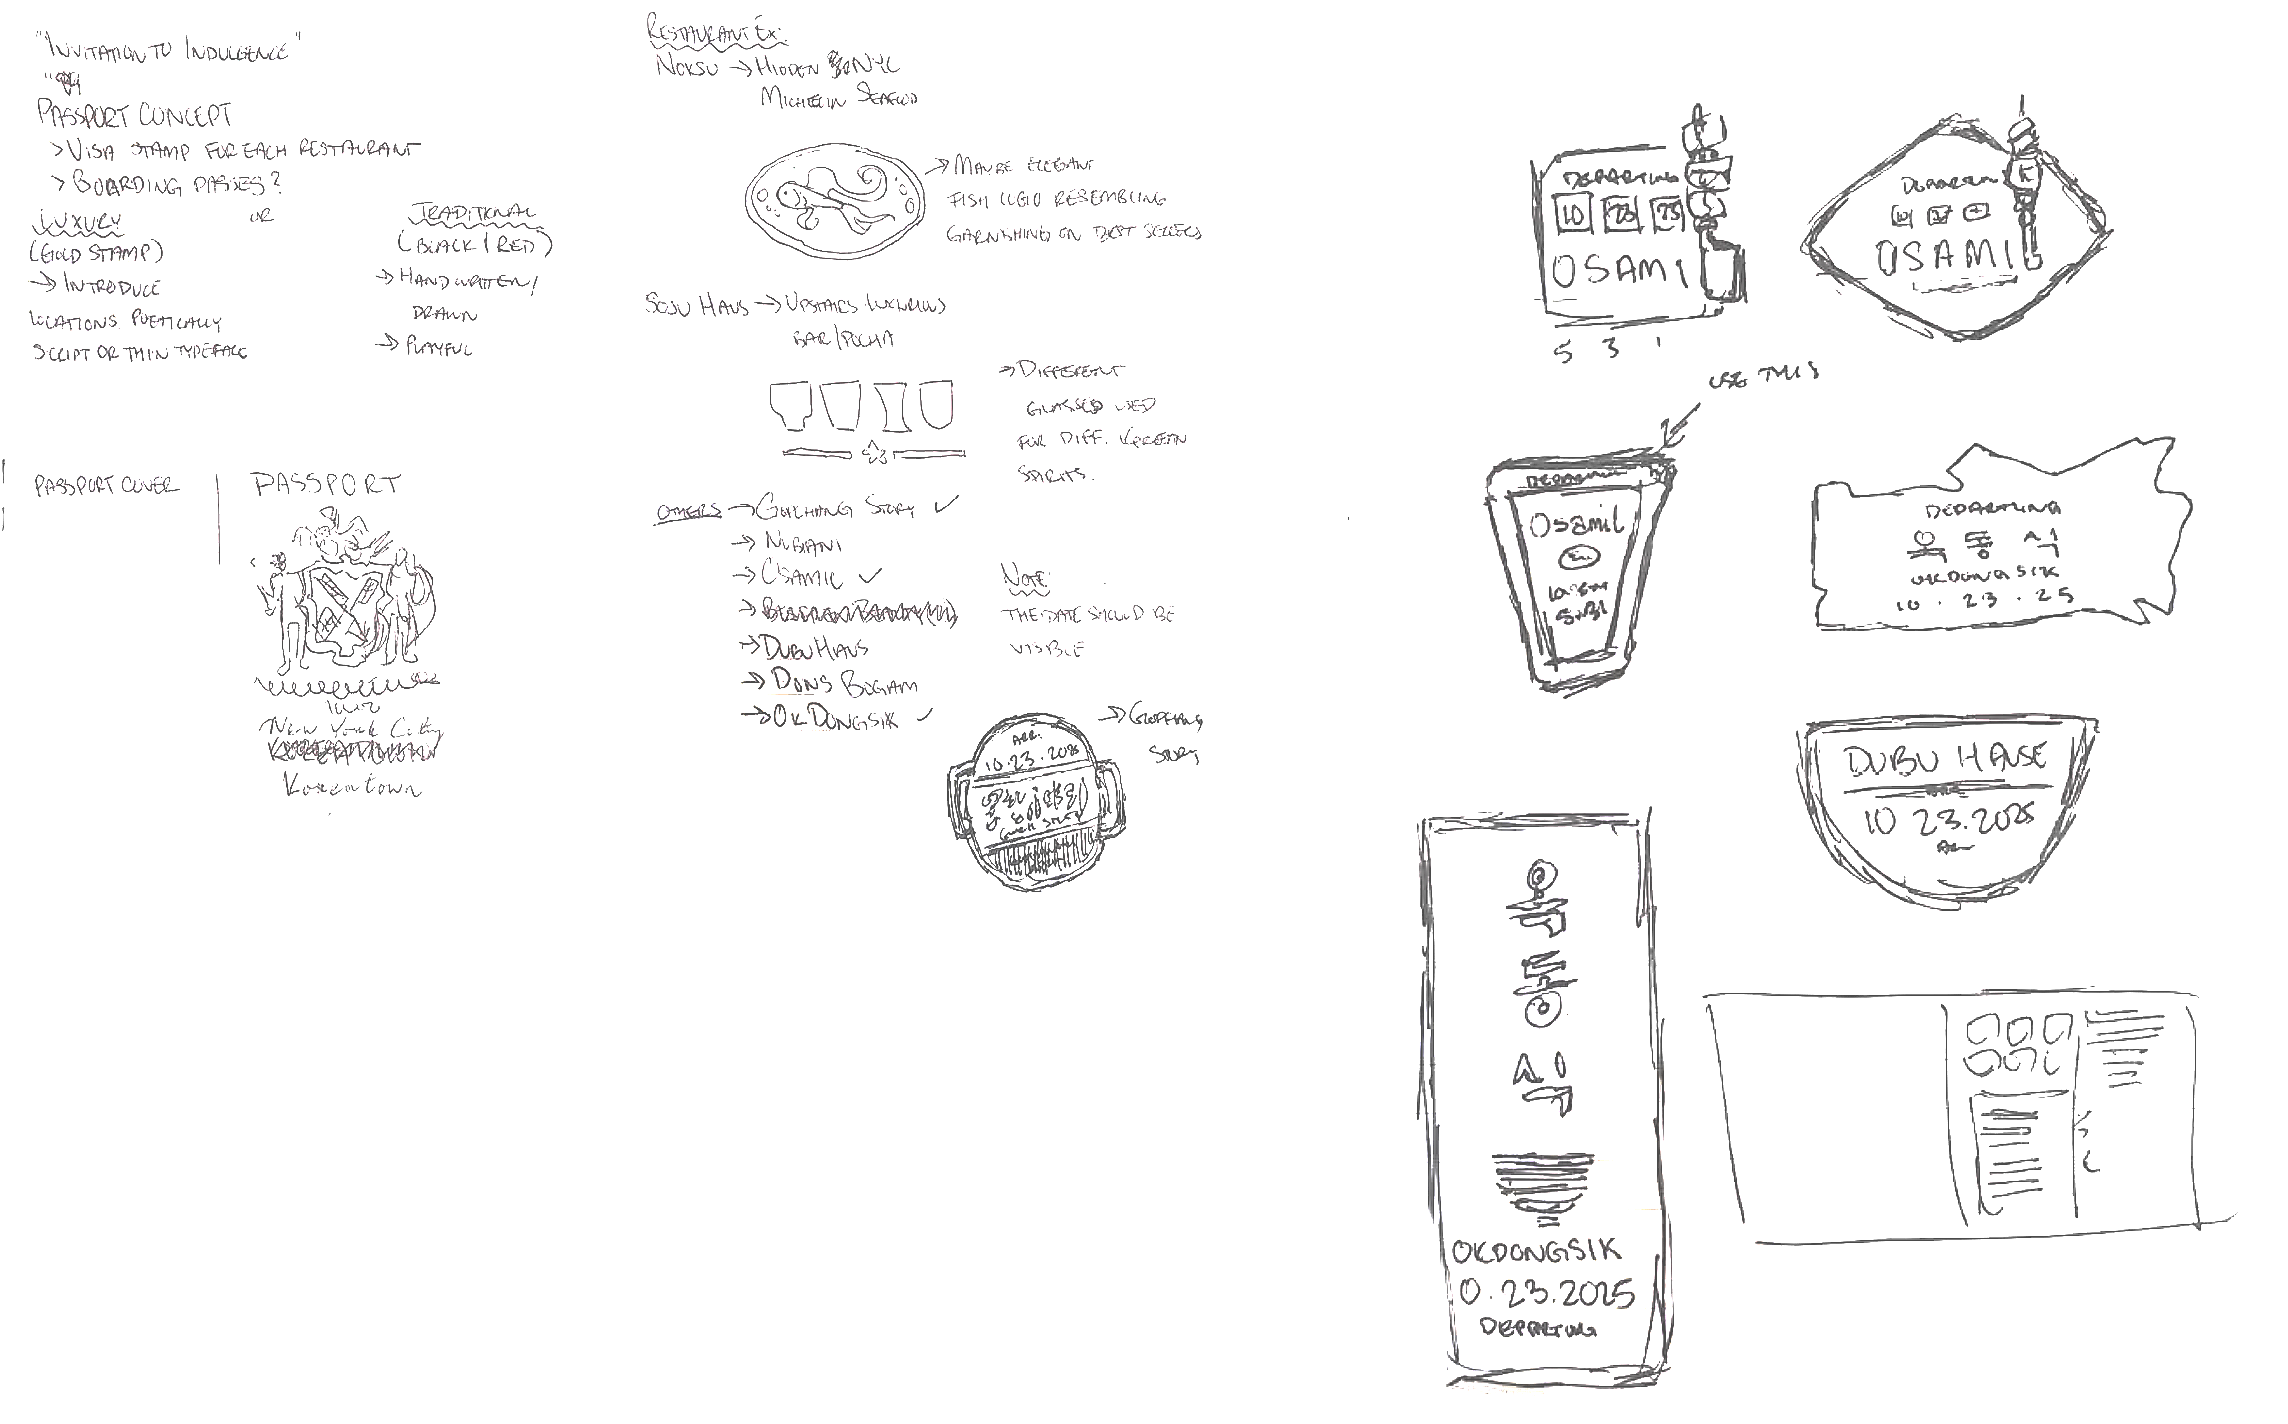 "INVITATION TO INDULGENCE"
PASSPORT CONCEPT
> VISA STAMP FOR EACH RESTAURANT
> BOARDING PASSES?
LUXURY
OR
TRADITIONAL
(GOLD STAMP)
(BLACK / RED)
→ INTRODUCE
LOCATIONS POETICALLY
SCRIPT OR THIN TYPEFACE
→ HANDWRITTEN/
DRAWN
→ PLAYFUL
PASSPORT COVER
PASSPORT
New York City
Koreatown
RESTAURANT EX:
NOKSU → HIDDEN NYC
MICHELIN SEAFOOD
→ MAYBE ELEGANT
FISH LOGO RESEMBLING
GARNISHING ON BEST SELLERS
SOJU HAUS → UPSTAIRS LUXURIOUS
BAR/POCHA
→ DIFFERENT
GLASSES USED
FOR DIFF. KOREAN
SPIRITS.
OTHERS → GOPCHANG STORY ✓
→ NUBIANI
→ OSAMIL ✓
→ DUBU HAUS
→ DONS BOGAM
→ OKDONGSIK ✓
NOTE:
THE DATE SHOULD BE
VISIBLE
ARR.
10.23.2025
→ GOPCHANG
STORY
DEPARTING
10 23 25
OSAMI
5 3 1
OSAMI
USE THIS
Osamil
DEPARTING
옥 동 식
OKDONGSIK
10 . 23 . 25
DUBU HAUSE
10 23.2025
옥
동
식
OKDONGSIK
0.23.2025
DEPARTING